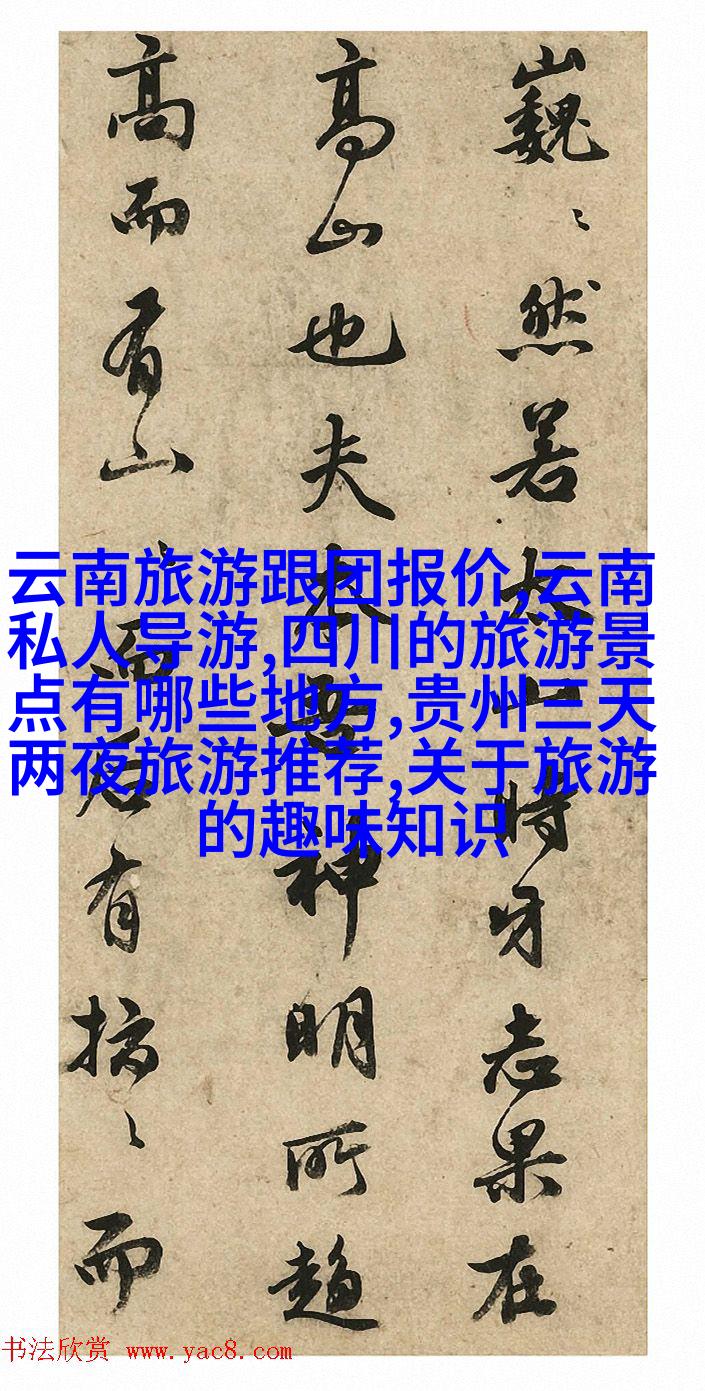 巍〻然若太山時牙志果在
高山也夫神明所趨
高而有山而石有〻而
云南旅游跟团报价,云南
私人导游,四川的旅游景
点有哪些地方,贵州三天
两夜旅游推荐,关于旅游
的趣味知识
书法欣赏 www.yac8.com